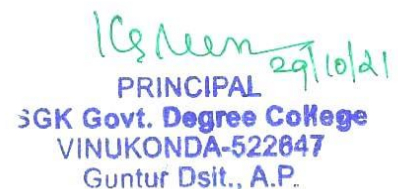 29/10/21
PRINCIPAL
SGK Govt. Degree College
VINUKONDA-522647
Guntur Dsit., A.P.